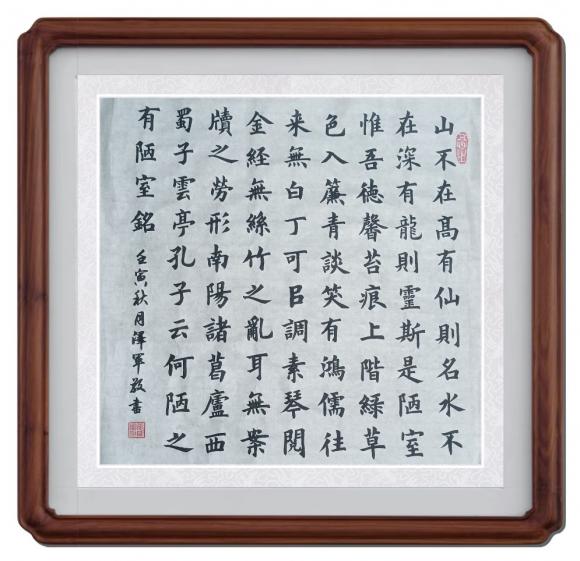 山不在髙有仙則名水不
在深有龍則靈斯是陋室
惟吾徳馨苔痕上階緑草
色入簾青談笑有鴻儒往
来無白丁可㠯調素琴閱
金経無絲竹之亂耳無案
牘之勞形南陽諸葛廬西
蜀子雲亭孔子云何陋之
有陋室銘
壬寅秋月澤軍敬書